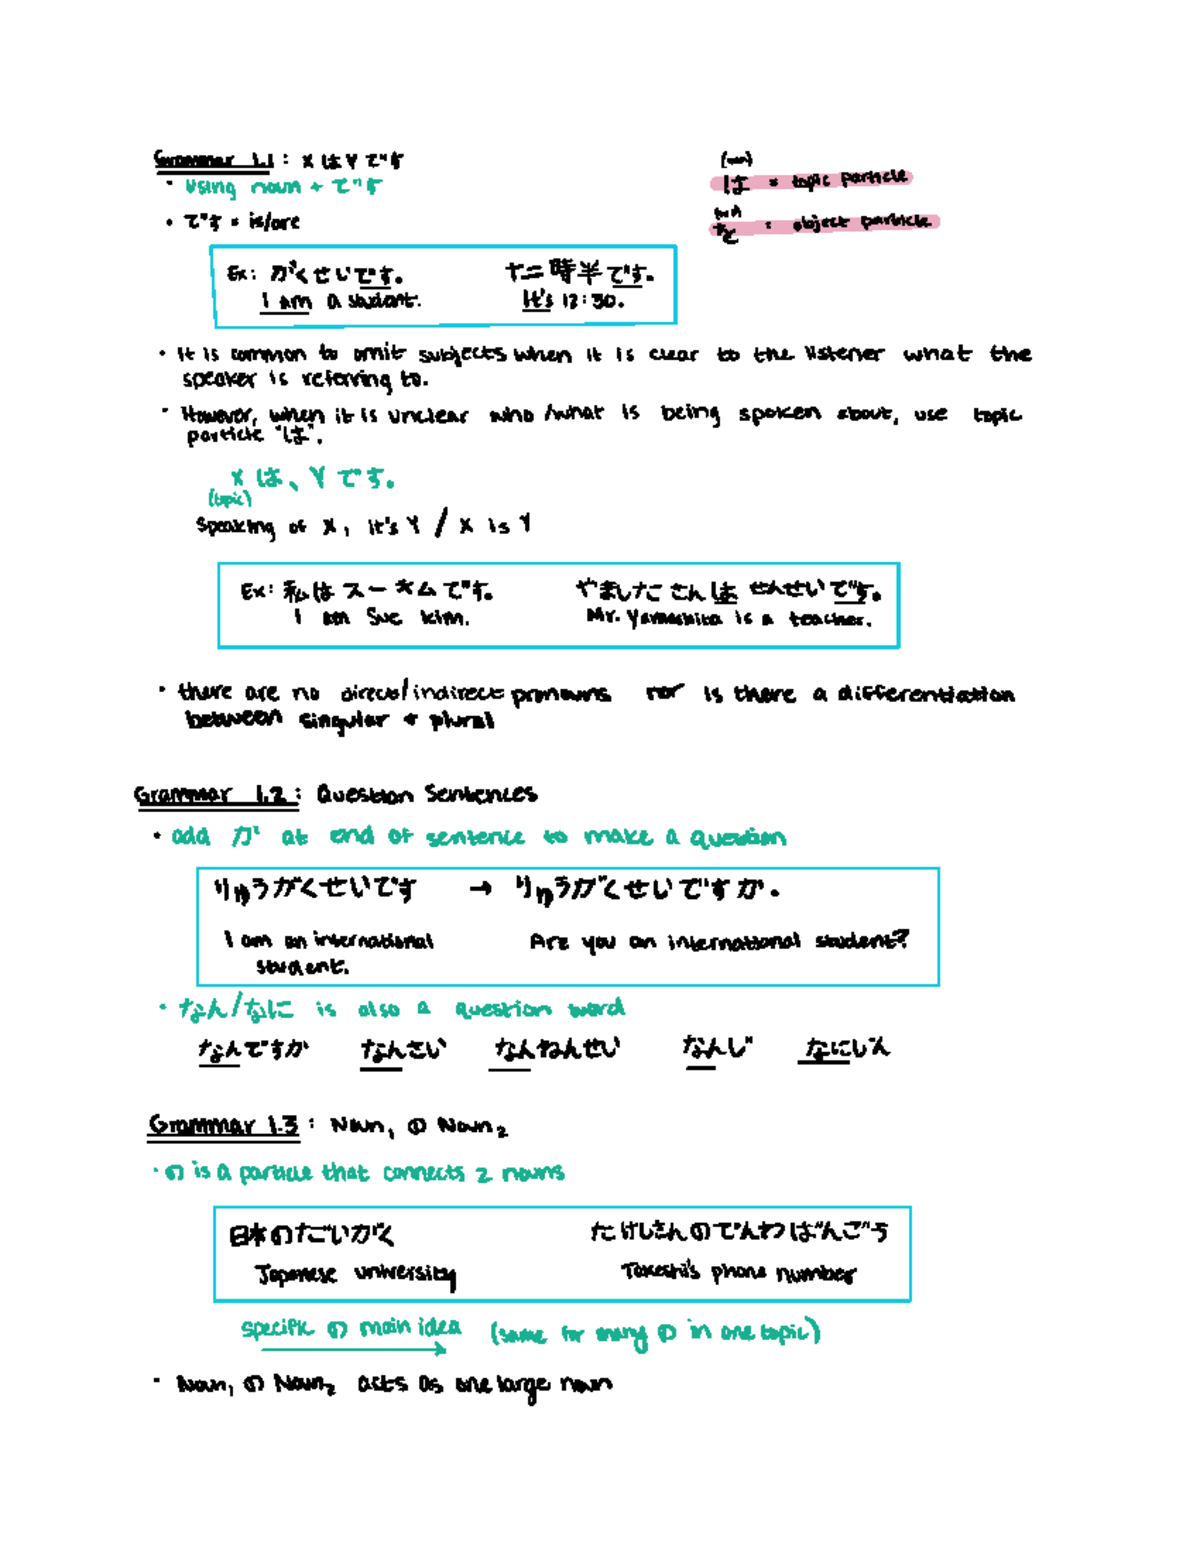 Grammar 1.1: XはYです
• Using noun + です
• です = is/are
は = topic particle
を = object particle
Ex: がくせいです。
I am a student.
十二時半です。
It's 12:30.
• It is common to omit subjects when it is clear to the listener what the
speaker is referring to.
• However, when it is unclear who/what is being spoken about, use topic
particle "は".
Xは、Yです。
(topic)
Speaking of X, it's Y / X is Y
Ex: 私はスーキムです。
I am Sue Kim.
やましたさんはせんせいです。
Mr. Yamashita is a teacher.
• there are no direct/indirect pronouns nor is there a differentiation
between singular + plural
Grammar 1.2: Question Sentences
• add か at end of sentence to make a question
りゅうがくせいです → りゅうがくせいですか.
I am an international
student.
Are you an international student?
• なん/なに is also a question word
なんですか なんさい なんねんせい なんじ なにじん
Grammar 1.3: Noun₁ の Noun₂
• の is a particle that connects 2 nouns
日本のだいがく
Japanese university
たけしさんのでんわばんごう
Takeshi's phone number
specific の main idea (same for many の in one topic)
→
• Noun₁ の Noun₂ acts as one large noun